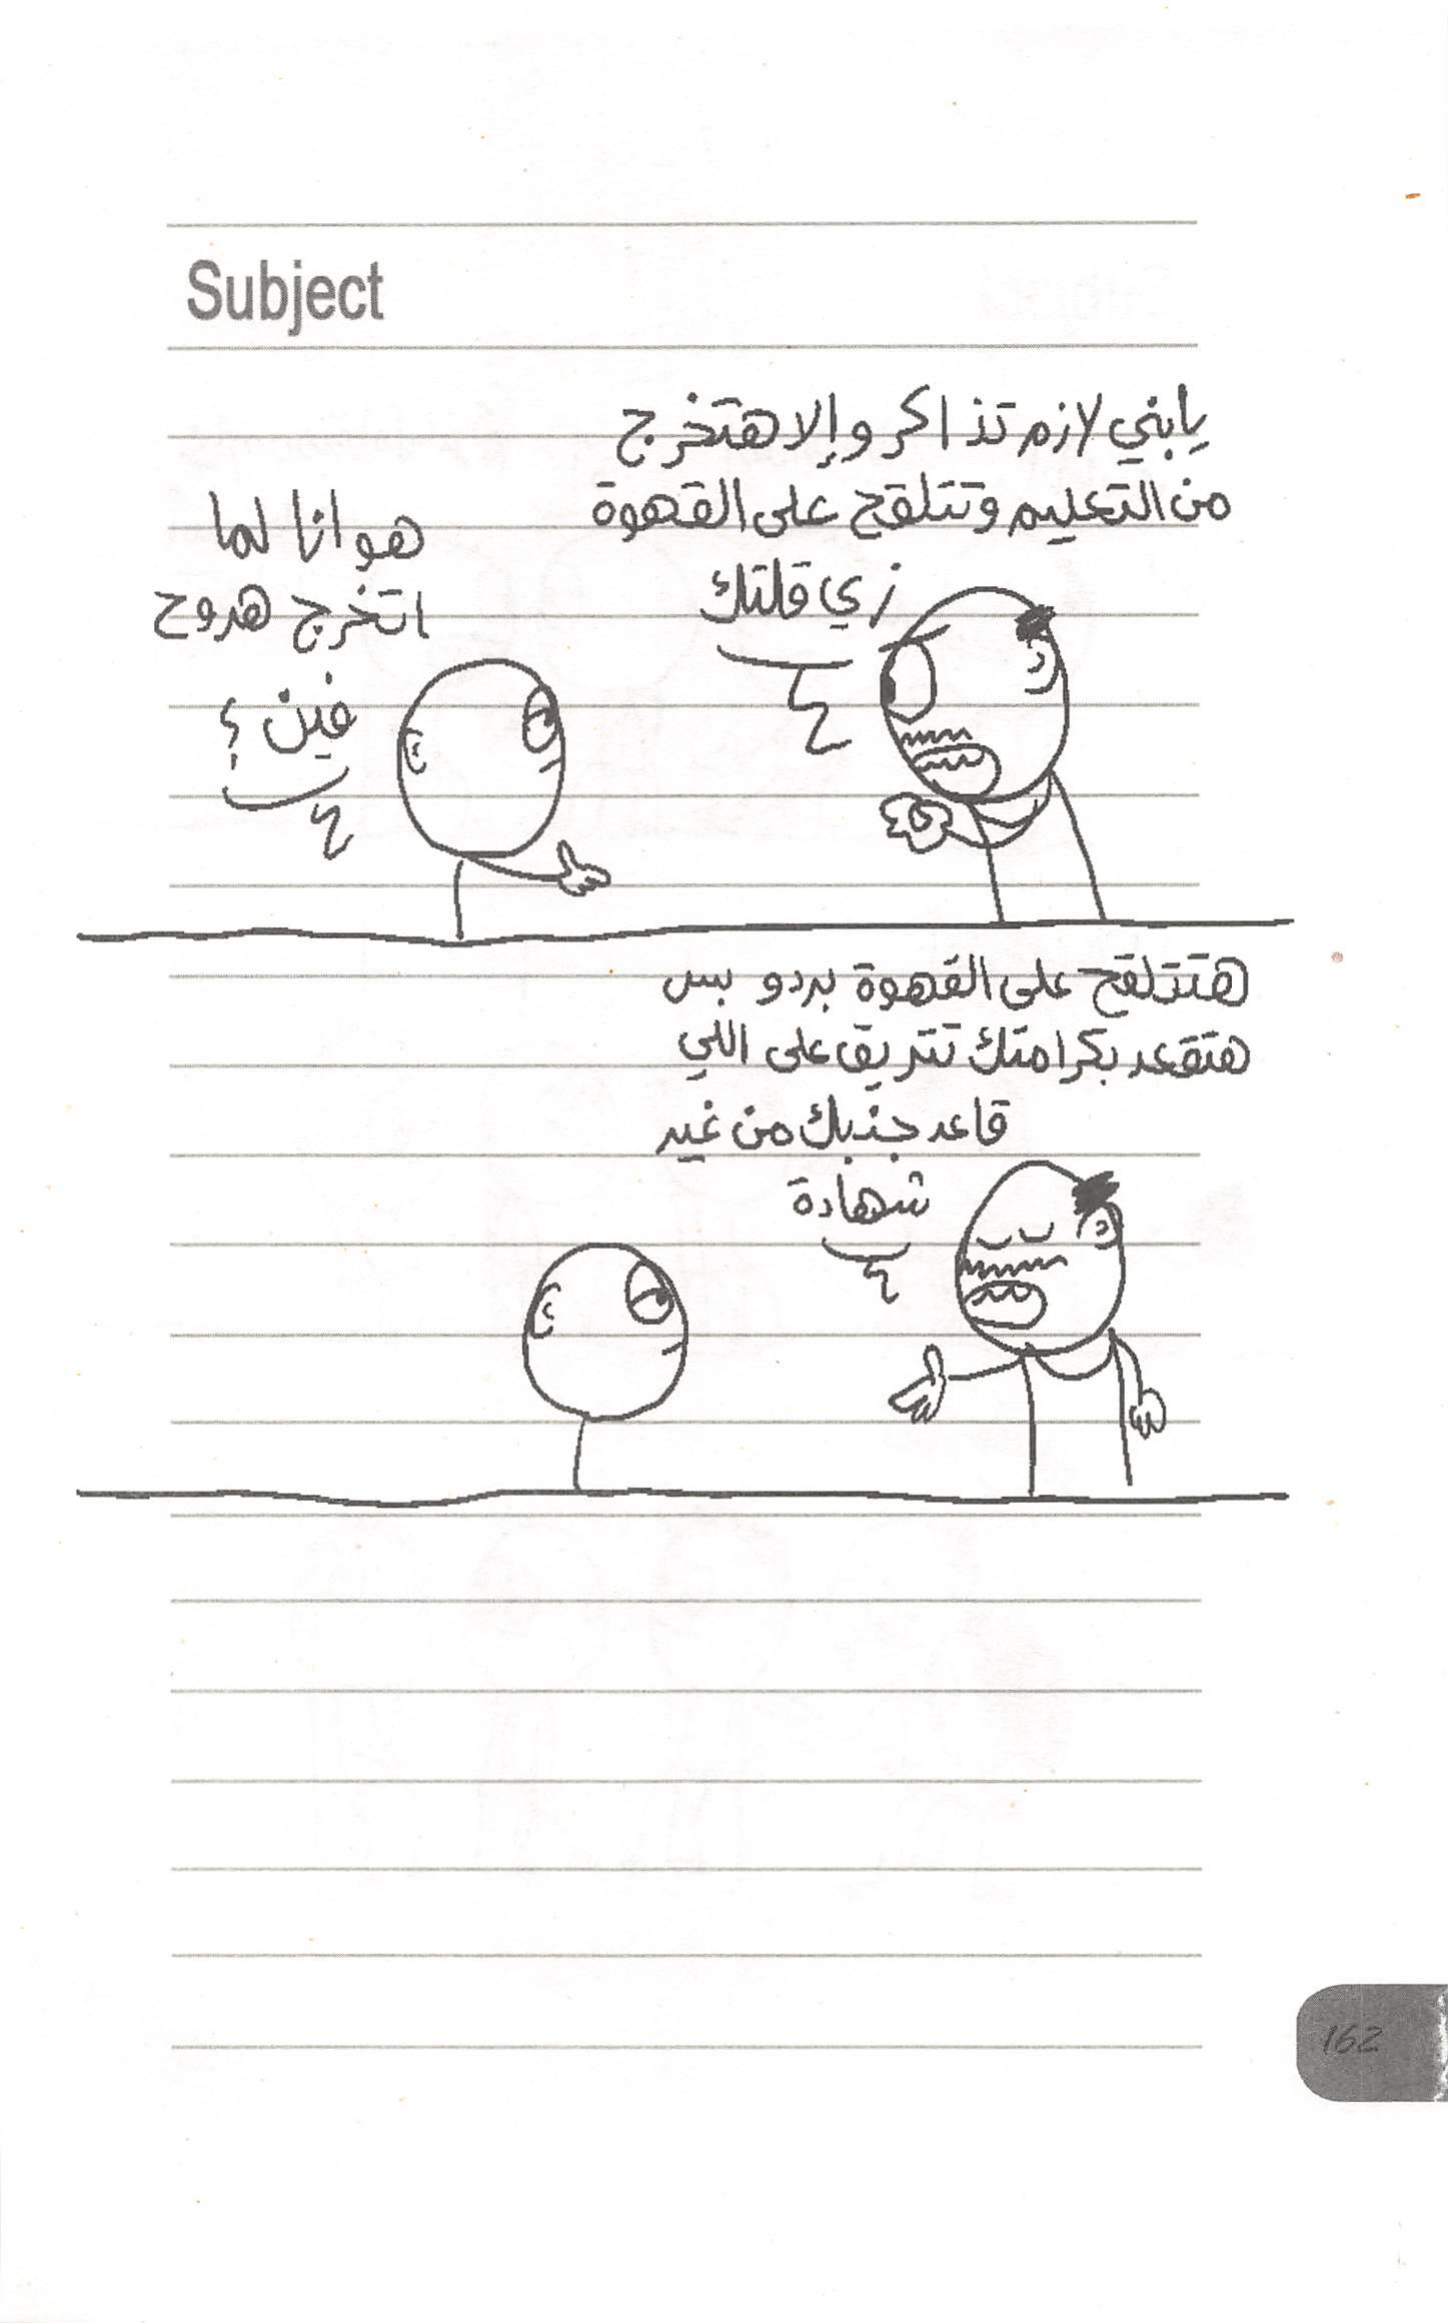 Subject
يابني لازم تذاكر وإلا هتخرج
من التعليم وتتلقح على القهوة
زي قلتك
هو انا لما
اتخرج هروح
فين؟
هتتلقح على القهوة بردو بس
هتقعد بكرامتك تتريق على اللي
قاعد جنبك من غير
شهادة
162